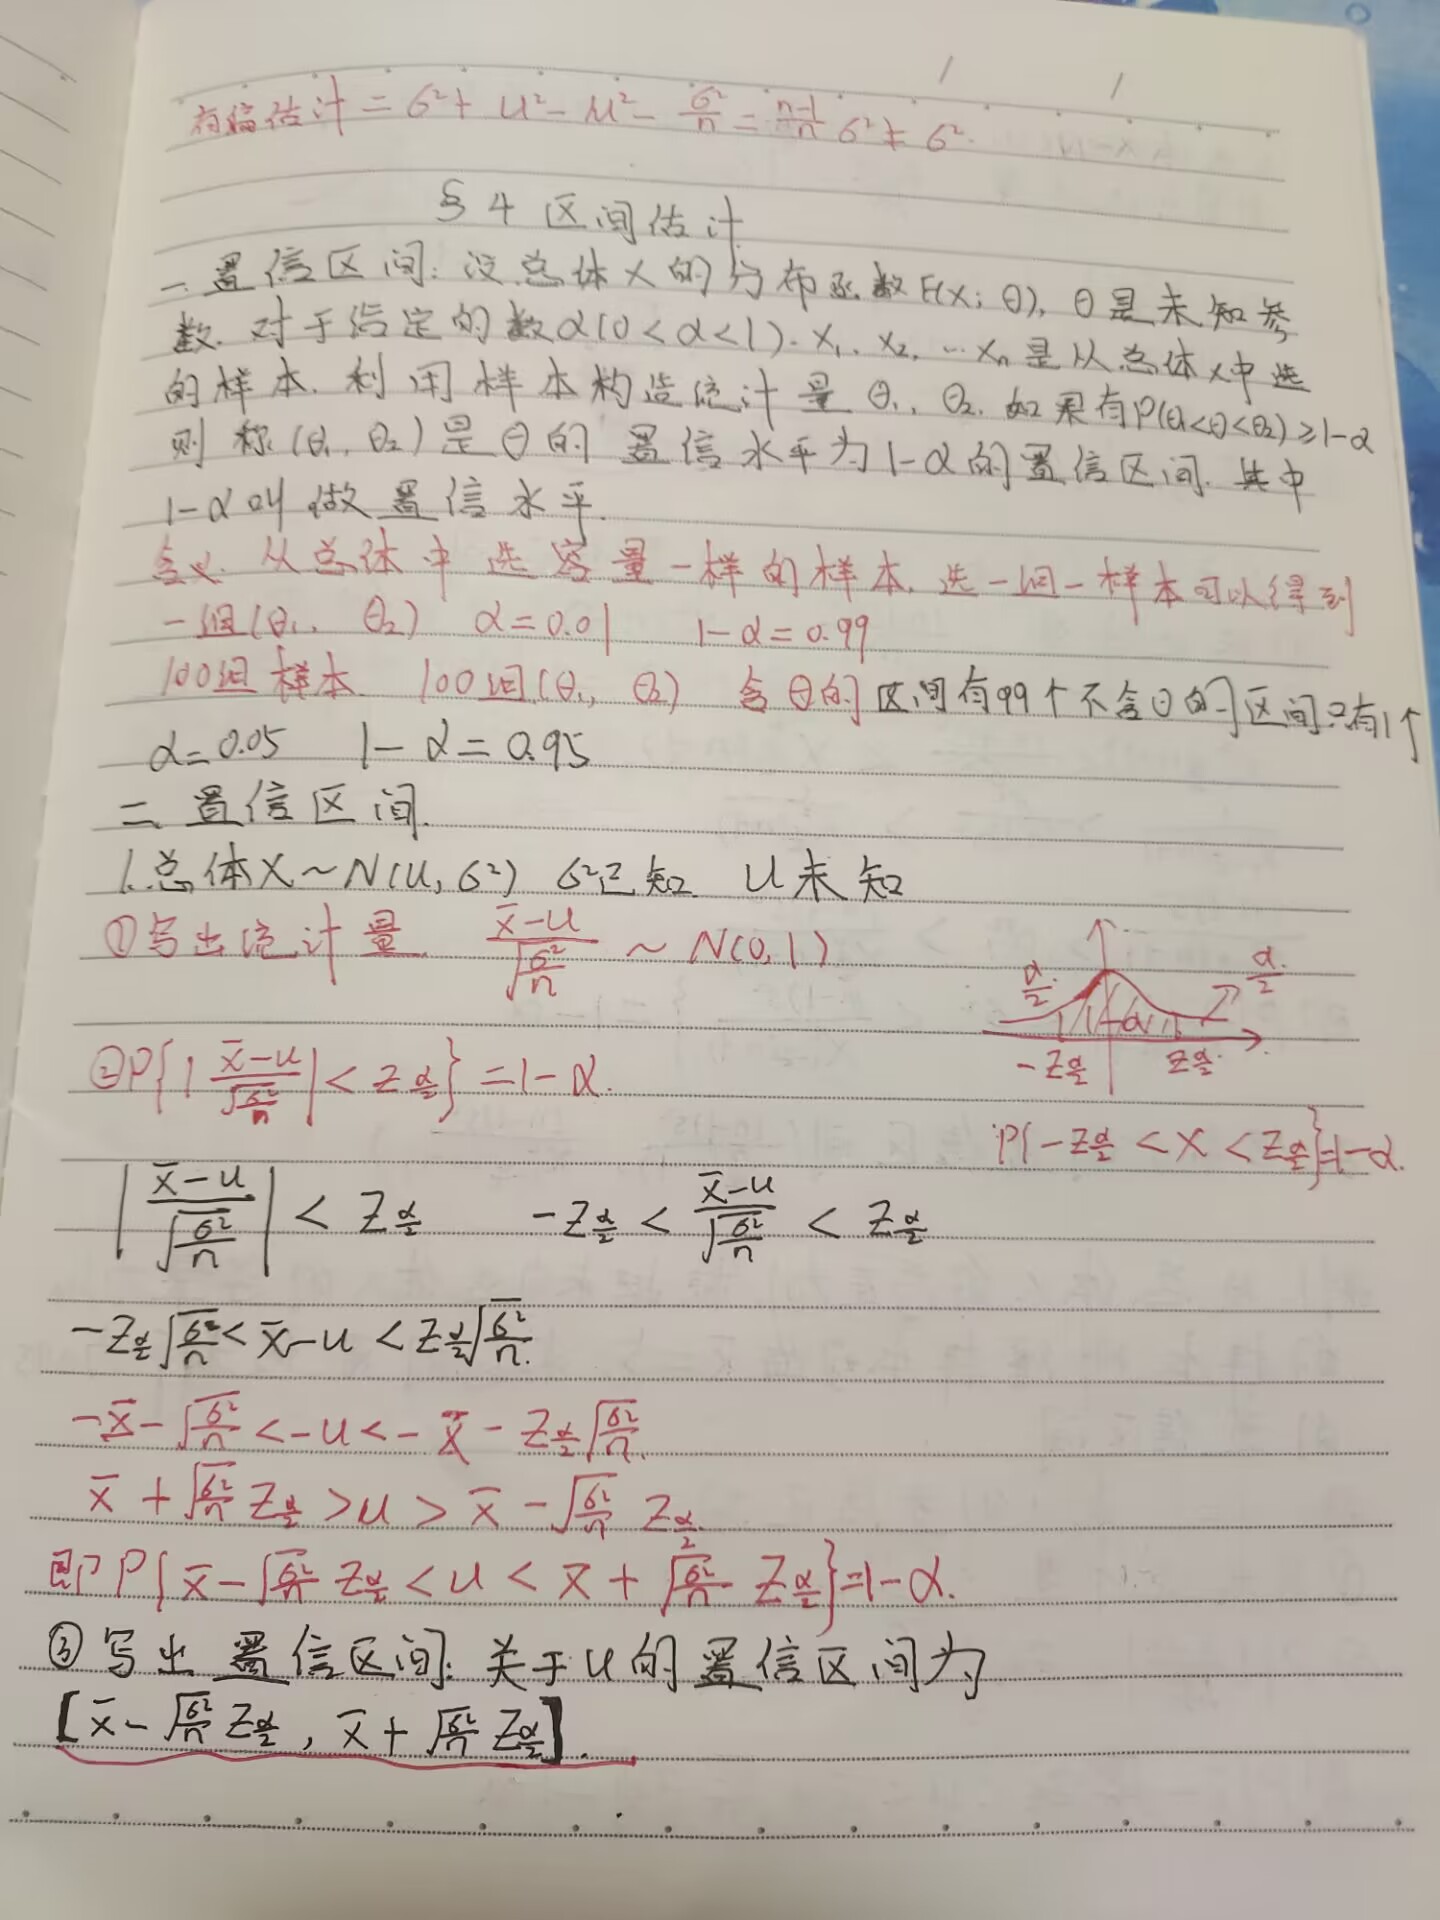 有偏估计 = σ² + u² - u² - σ²/n = (n-1)/n σ² ≠ σ².
§4 区间估计
一. 置信区间: 设总体X的分布函数F(X; θ), θ是未知参
数. 对于给定的数α(0<α<1). X₁, X₂, …Xₙ是从总体X中选
的样本. 利用样本构造统计量 θ₁, θ₂. 如果有P(θ₁<θ<θ₂)≥1-α
则称(θ₁, θ₂)是θ的置信水平为1-α的置信区间. 其中
1-α叫做置信水平.
含义. 从总体中选容量一样的样本. 选一组一样本可以得到
一组(θ₁, θ₂) α=0.01 1-α=0.99
100组样本 100组(θ₁, θ₂) 含θ的区间有99个不含θ的区间只有1个
α=0.05 1-α=0.95
二. 置信区间.
1. 总体X~N(u, σ²) σ²已知 u未知
①写出统计量 (x̄-u)/√(σ²/n) ~ N(0,1)
α/2 α/2
1-α
-Zα/2 Zα/2
②P{|(x̄-u)/√(σ²/n)| < Zα/2} = 1-α.
P{-Zα/2 < X < Zα/2} = 1-α.
|(x̄-u)/√(σ²/n)| < Zα/2 -Zα/2 < (x̄-u)/√(σ²/n) < Zα/2
-Zα/2 √(σ²/n) < x̄-u < Zα/2 √(σ²/n).
-x̄ - √(σ²/n) < -u < -x̄ - Zα/2 √(σ²/n).
x̄ + √(σ²/n) Zα/2 > u > x̄ - √(σ²/n) Zα/2.
即P{x̄ - √(σ²/n) Zα/2 < u < x̄ + √(σ²/n) Zα/2} = 1-α.
③写出置信区间: 关于u的置信区间为
[x̄ - √(σ²/n) Zα/2, x̄ + √(σ²/n) Zα/2].